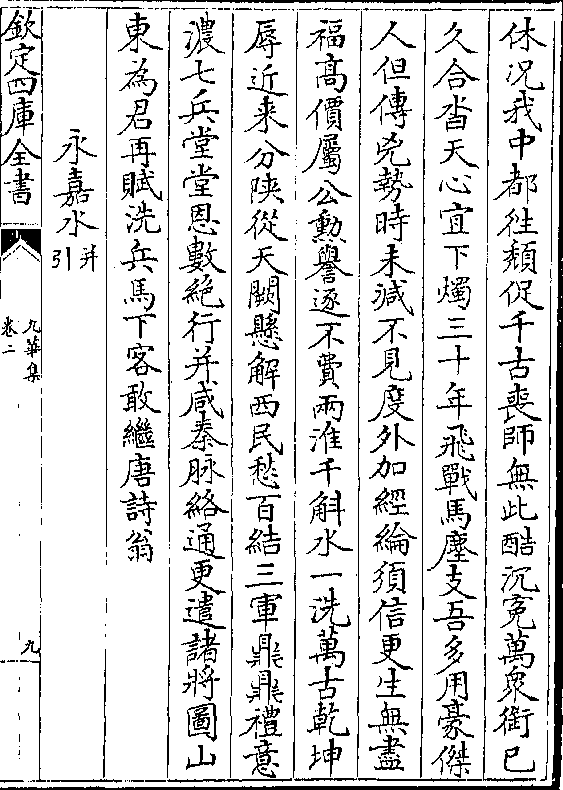 休况我中都徃頽促千古喪師無此酷沉寃萬衆銜已
久合沓天心宜下燭三十年飛戰馬塵支吾多用豪傑
人但傳兇勢時未減不見度外加經綸須信更生無盡
福高價屬公勲譽逐不費兩淮千斛水一洗萬古乾坤
辱近来分陜從天闕懸解西民愁百結三軍鼎鼎禮意
濃七兵堂堂恩數絶行并咸秦脉絡通更遣諸將圖山
東為君再賦洗兵馬下客敢繼唐詩翁
永嘉水并引
欽定四庫全書
九華集
卷二
九